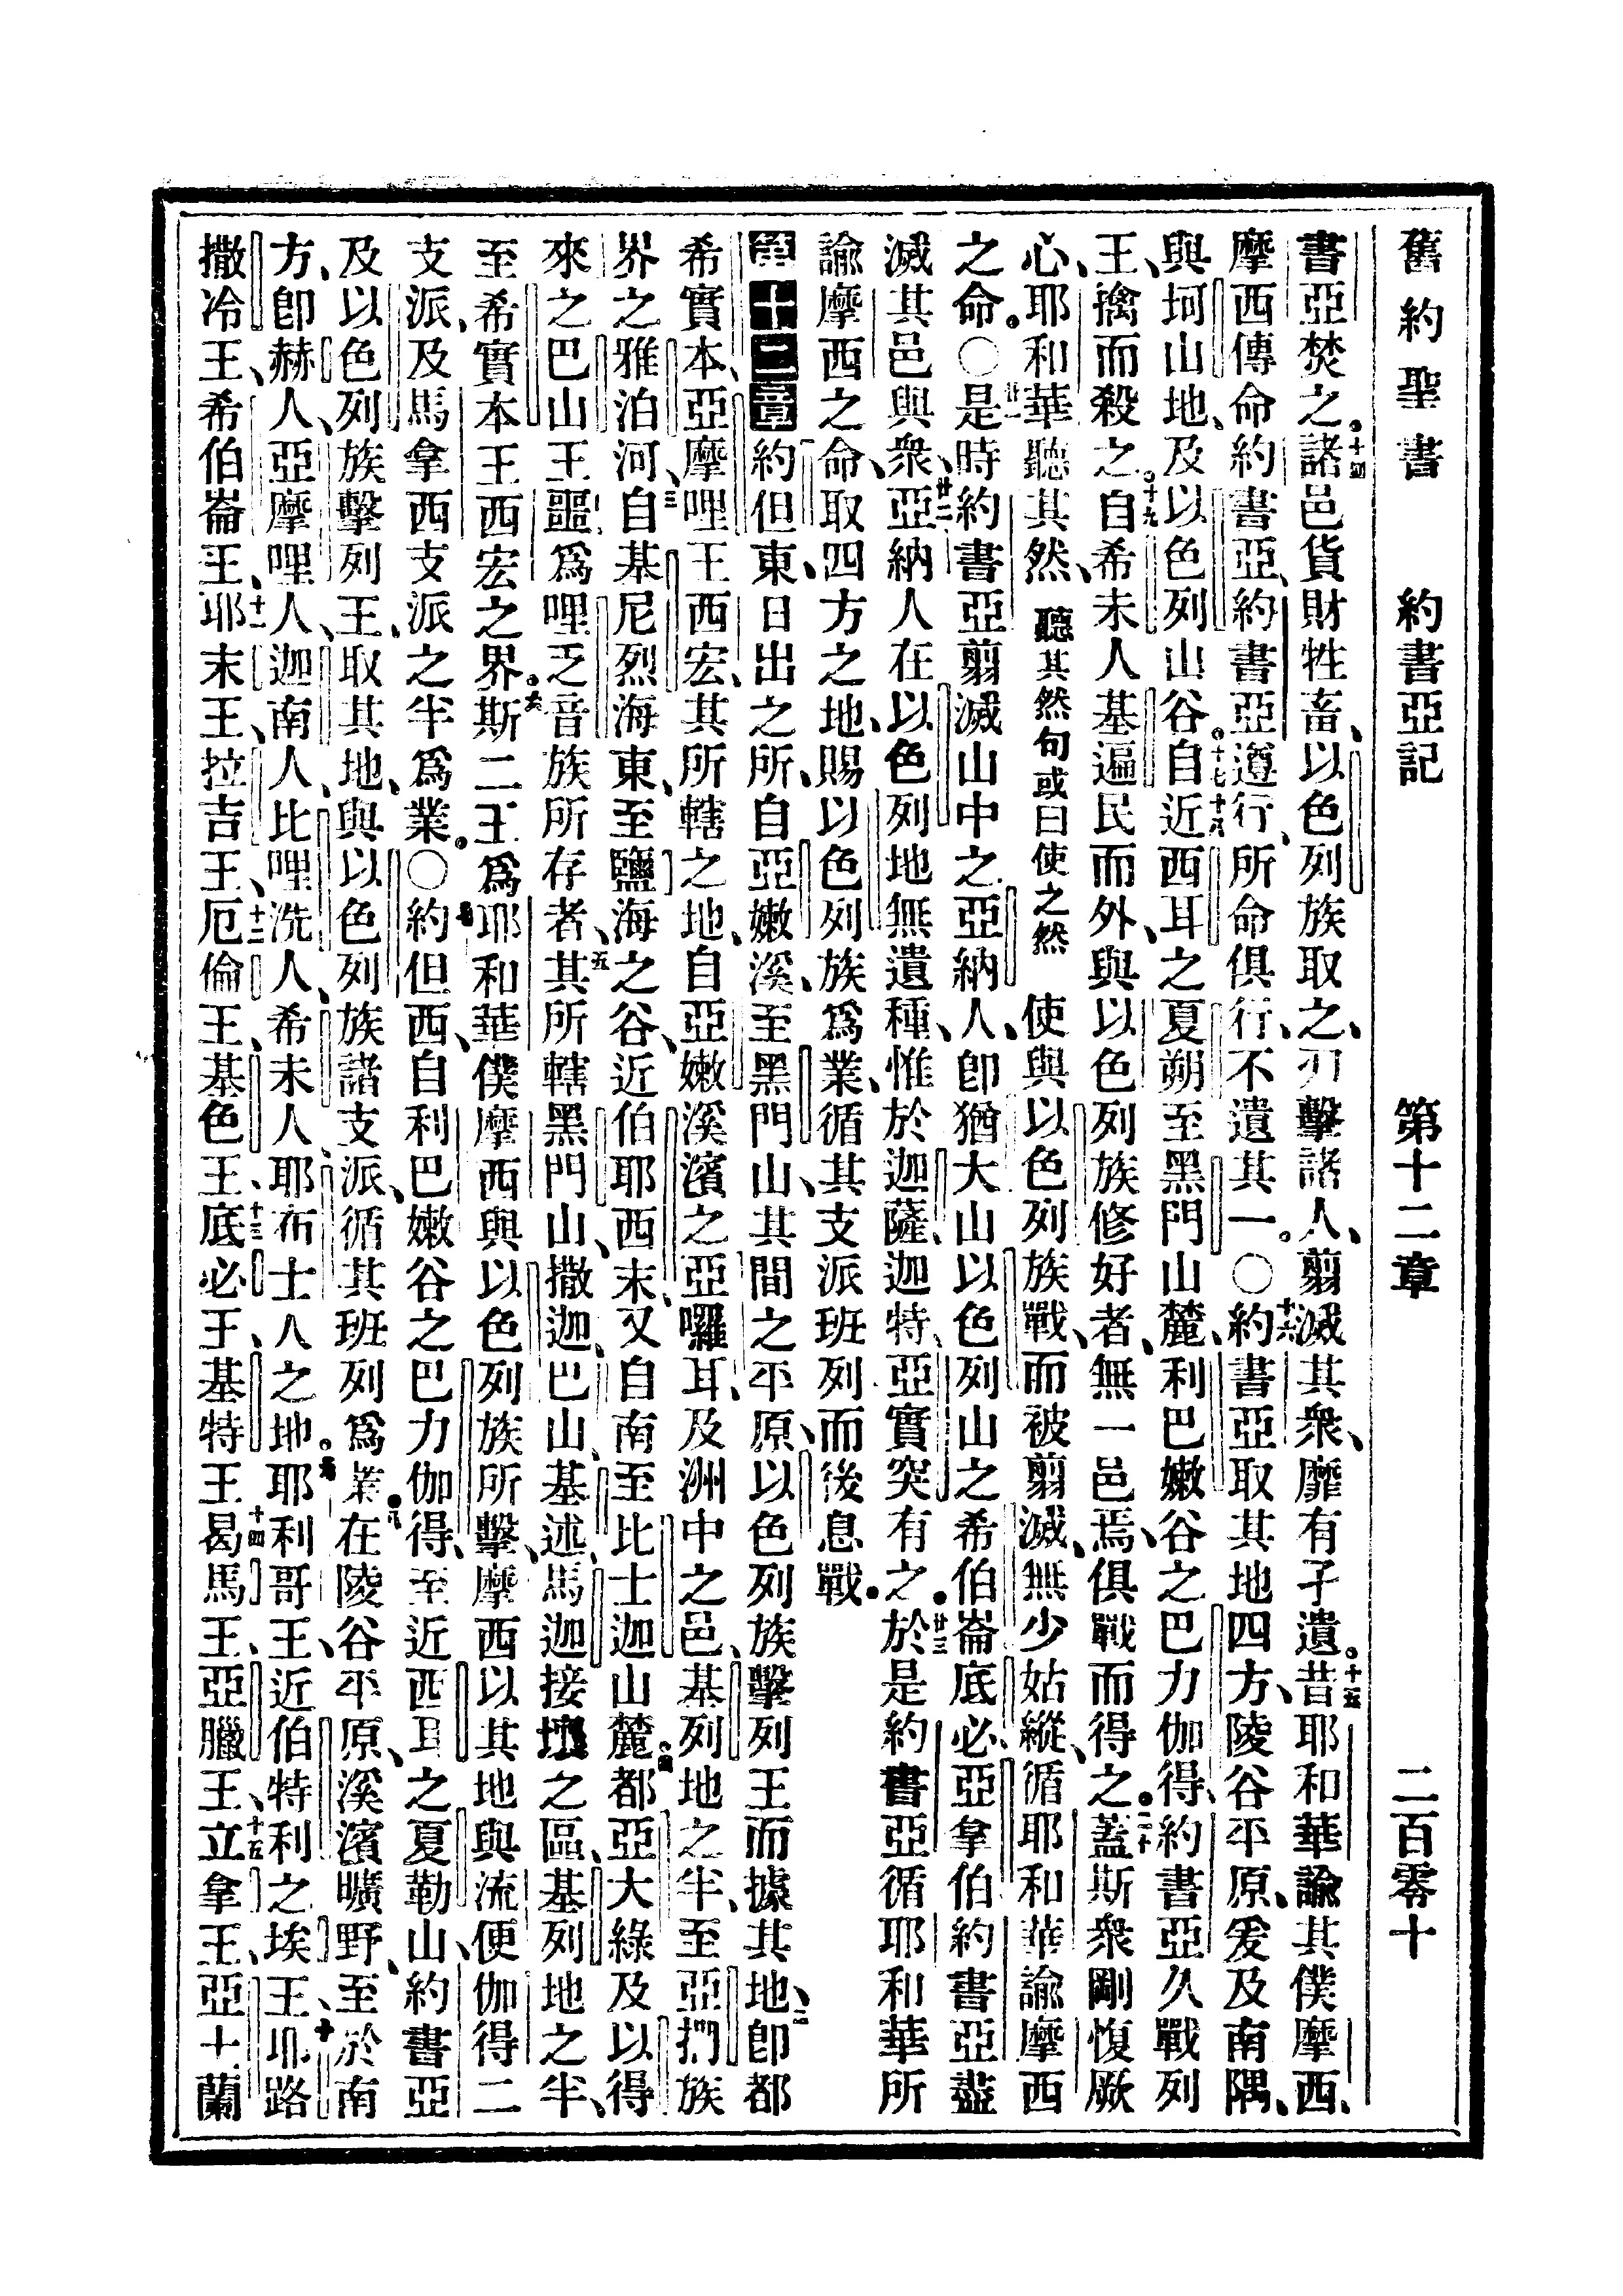 舊約聖書 約書亞記 第十二章 二百零十
書亞焚之。十四諸邑貨財牲畜、以色列族取之、刃擊諸人、翦滅其衆、靡有孑遺。十五昔耶和華諭其僕摩西、
摩西傳命約書亞、約書亞遵行、所命俱行、不遺其一。〇十六約書亞取其地四方、陵谷平原、爰及南隅、
與坷山地、及以色列山谷。十七自近西耳之夏朔、至黑門山麓、利巴嫩谷之巴力伽得、十八約書亞久戰列
王、擒而殺之。十九自希未人基遍民而外、與以色列族修好者、無一邑焉、俱戰而得之。二十蓋斯衆剛愎厥
心、耶和華聽其然、聽其然句或曰使之然使與以色列族戰、而被翦滅、無少姑縱、循耶和華諭摩西
之命。〇廿一是時約書亞翦滅山中之亞納人、卽猶大山以色列山之希伯崙底必亞拿伯、約書亞盡
滅其邑與衆、廿二亞納人在以色列地無遺種、惟於迦薩、迦特、亞實突有之。廿三於是約書亞循耶和華所
諭摩西之命、取四方之地、賜以色列族爲業、循其支派班列、而後息戰。
第十二章 約但東、日出之所、自亞嫩溪、至黑門山、其間之平原、以色列族擊列王而據其地、二卽都
希實本、亞摩哩王西宏、其所轄之地、自亞嫩溪濱之亞囉耳、及洲中之邑、基列地之半、至亞捫族
界之雅泊河、三自基尼烈海東、至鹽海之谷、近伯耶西末、又自南至比士迦山麓。四都亞大綠及以得
來之巴山王噩、爲哩乏音族所存者、五其所轄黑門山、撒迦、巴山、基述、馬迦接壤之區、基列地之半、
至希實本王西宏之界。六斯二王爲耶和華僕摩西與以色列族所擊、摩西以其地與流便伽得二
支派、及馬拿西支派之半爲業。〇七約但西、自利巴嫩谷之巴力伽得、至近西耳之夏勒山、約書亞
及以色列族擊列王、取其地、與以色列族諸支派、循其班列爲業。八在陵谷平原、溪濱曠野、至於南
方、卽赫人、亞摩哩人、迦南人、比哩洗人、希未人、耶布士人之地。九耶利哥王、近伯特利之埃王、十耶路
撒冷王、希伯崙王、十一耶末王、拉吉王、十二厄倫王、基色王、十三底必王、基特王、十四曷馬王、亞臘王、十五立拿王、亞土蘭